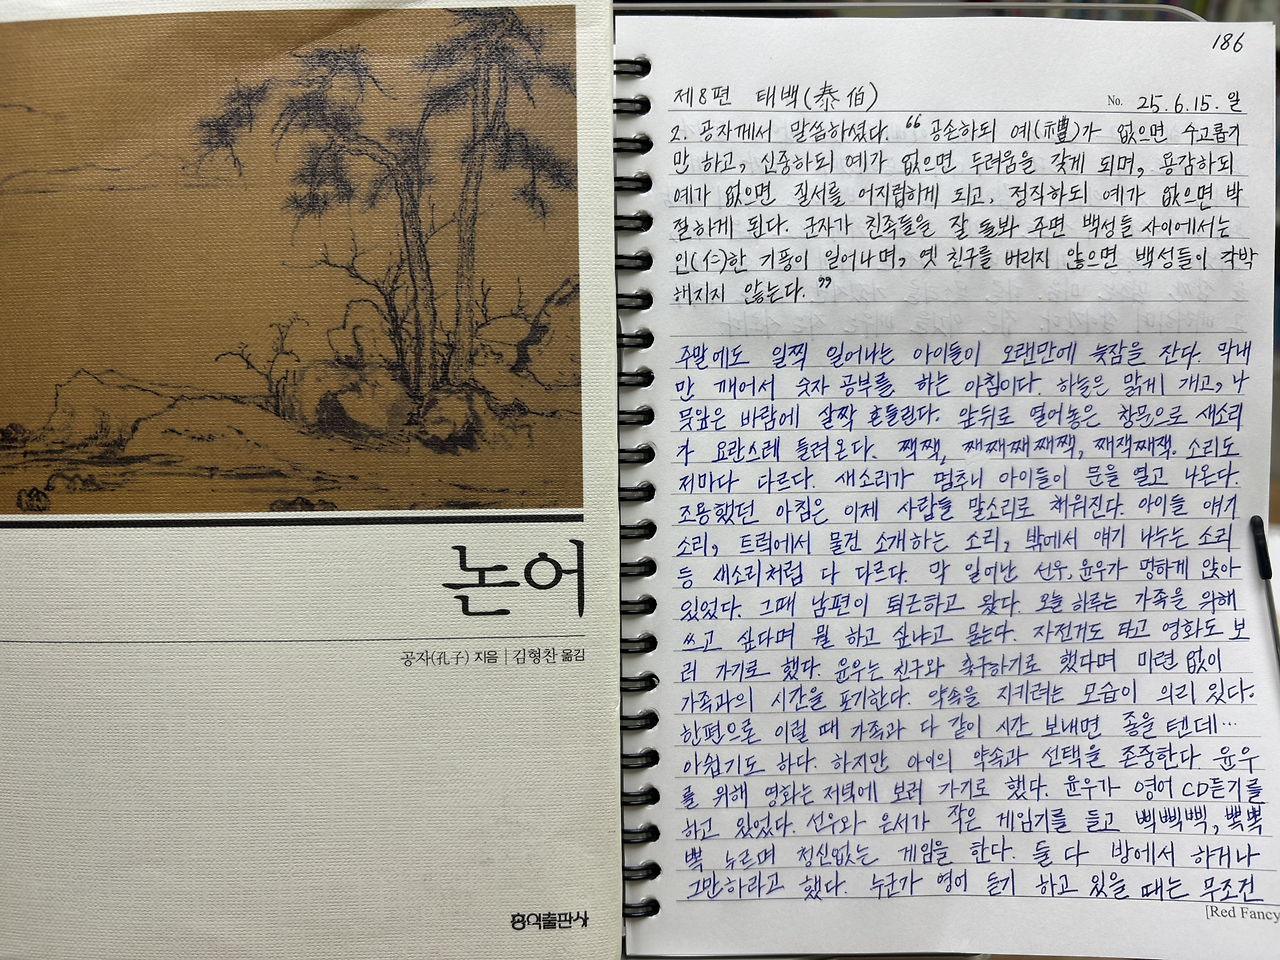 논어
공자(孔子) 지음 | 김형찬 옮김
홍익출판사
186
제8편 태백(泰伯)
No. 25.6.15.일
2. 공자께서 말씀하셨다. “공손하되 예(禮)가 없으면 수고롭기
만 하고, 신중하되 예가 없으면 두려움을 갖게 되며, 용감하되
예가 없으면 질서를 어지럽히게 되고, 정직하되 예가 없으면 박
절하게 된다. 군자가 친족들을 잘 돌봐 주면 백성들 사이에서는
인(仁)한 기풍이 일어나며, 옛 친구를 버리지 않으면 백성들이 각박
해지지 않는다.”
주말에도 일찍 일어나는 아이들이 오랜만에 늦잠을 잔다. 막내
만 깨어서 숫자 공부를 하는 아침이다. 하늘은 맑게 개고, 나
뭇잎은 바람에 살짝 흔들린다. 앞뒤로 열어놓은 창문으로 새소리
가 요란스레 들려온다. 짹짹, 째째째째짹, 째잭째잭. 소리도
저마다 다르다. 새소리가 멈추니 아이들이 문을 열고 나온다.
조용했던 아침은 이제 사람들 말소리로 채워진다. 아이들 얘기
소리, 트럭에서 물건 소개하는 소리, 밖에서 얘기 나누는 소리
등 새소리처럼 다 다르다. 막 일어난 선우, 윤우가 멍하게 앉아
있었다. 그때 남편이 퇴근하고 왔다. 오늘 하루는 가족을 위해
쓰고 싶다며 뭘 하고 싶냐고 묻는다. 자전거도 타고 영화도 보
러 가기로 했다. 윤우는 친구와 축구하기로 했다며 미련 없이
가족과의 시간을 포기한다. 약속을 지키려는 모습이 의리 있다.
한편으론 이럴 때 가족과 다 같이 시간 보내면 좋을 텐데…
아쉽기도 하다. 하지만 아이의 약속과 선택을 존중한다. 윤우
를 위해 영화는 저녁에 보러 가기로 했다. 윤우가 영어 CD듣기를
하고 있었다. 선우와 은서가 작은 게임기를 들고 삑삑삑, 뽁뽁
뽁 누르며 정신없는 게임을 한다. 둘 다 방에서 하거나
그만하라고 했다. 누군가 영어 듣기 하고 있을 때는 무조건
[Red Fancy